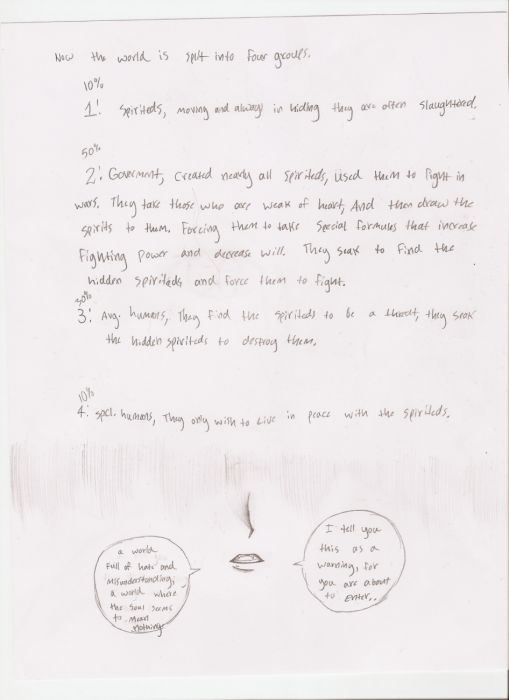 Now the world is split into four groups.
10%
1: Spiriteds, moving and always in hiding they are often slaughtered.
50%
2: Goverment, created nearly all spiriteds, used them to fight in
wars. They take those who are weak of heart, And then draw the
spirits to them. Forcing them to take special formules that increase
fighting power and decrease will. They seak to find the
hidden spiriteds and force them to fight.
30%
3: Avg. humans, They find the spiriteds to be a threat, they seak
the hidden spiriteds to destroy them.
10%
4: spcl. humans, They only wish to live in peace with the spiriteds.
a world
full of hate and
misunderstanding,
a world where
the soul seems
to mean
nothing
I tell you
this as a
warning, for
you are about
to enter..